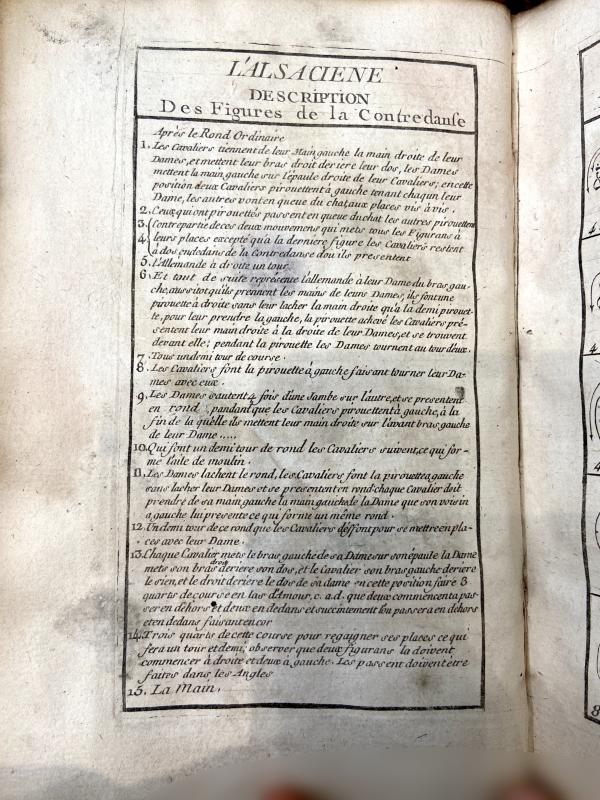 L'ALSACIENE
DESCRIPTION
Des Figures de la Contredanse
Après le Rond Ordinaire
1. Les Cavaliers tiennent de leur Main gauche la main droite de leur
Dames, et mettent leur bras droit deriere leur dos, les Dames
mettent la main gauche sur l'épaule droite de leur Cavaliers; en cette
position deux Cavaliers pirouettent à gauche tenant chaqun leur
Dame, les autres vont en queue du chat, aux places vis à vis.
2. Ceux qui ont pirouettés passent en queue du chat les autres pirouettent
3. Contrepartie de ces deux mouvemens qui mets tous les Figurans à
4. leurs places excepté qu'à la derniere figure les Cavaliers restent
à dos en dedans de la Contredanse d'ou ils presentent
5. l'Allemande à droite un tour.
6. Et tout de suite represente l'allemande à leur Dame du bras gau-
che, aussitot qu'ils prennent les mains de leurs Dames, ils font une
pirouette à droite sans leur lacher la main droite qu'à la demi pirouet-
te, pour leur prendre la gauche, la pirouette achevé les Cavaliers pré-
sentent leur main droite à la droite de leur Dames, et se trouvent
devant elle; pendant la pirouette les Dames tournent au tour d'eux.
7. Tous un demi tour de course.
8. Les Cavaliers font la pirouette à gauche faisant tourner leur Da-
mes avec eux.
9. Les Dames sautent 4 fois d'une Jambe sur l'autre, et se presentent
en rond, pandant que les Cavaliers pirouettent à gauche, à la
fin de la quelle ils mettent leur main droite sur l'avant bras gauche
de leur Dame .....
10. Qui font un demi tour de rond les Cavaliers suivent, ce qui for-
me l'aile de moulin.
11. Les Dames lachent le rond, les Cavaliers font la pirouette a gauche
sans lacher leur Dames et se presentent en rond chaque Cavalier doit
prendre de sa main gauche la main gauche de la Dame que son voisin
a gauche lui presente ce qui forme un même rond.
12. Un demi tour de ce rond que les Cavaliers déffont pour se mettre en pla-
ces avec leur Dame.
13. Chaque Cavalier mets le bras gauche de sa Dame sur son épaule la Dame
mets son bras droit deriere son dos, et le Cavalier son bras gauche deriere
le sien, et le droit deriere le dos de sa dame en cette position faire 3
quarts de course en las d'Amour, c. a. d. que deux commencent a pas-
ser en déhors et deux en dedans et succintement l'on passera en déhors
et en dedans faisant encor
14. Trois quarts de cette course pour regaigner ses places ce qui
fera un tour et demi, observer que deux figurans la doivent
commencer à droite et deux à gauche. Les passent doivent être
faites dans les Angles
15. La Main.